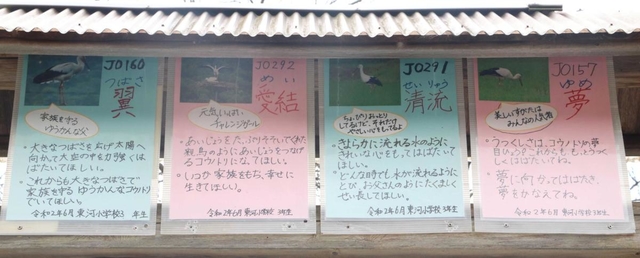 J0160
つばさ
翼
家族を守る
ゆうかんな父
大きなつばさを広げ太陽へ
向かって大空をも力強くは
ばたいてほしい。
これからも大きなつばさで
家族を守るゆうかんなコウノトリ
でいてほしい。
令和2年6月 東河小学校3年生
J0292
めい
愛結
元気いっぱい
チャレンジガール
あいじょうを
あいじょうをつなげる
コウノトリになってほしい。
いつか家族をもち、幸せに
生きてほしい。
令和2年6月 東河小学校 3年生
J0291
せいりゅう
清流
ちょっぴりおっとり
してるけど、それだけ
やさしい心をもってるよ
きよらかに流れる水のように
きれいな心をもってはばたいて
ほしい。
どんな時でも水が流れるように
とび、お父さんのようにたくまし
くせい長してほしい。
令和2年6月 東河小学校3年生
J0157
ゆめ
夢
美しいすがたは
みんなの人気者
うつくしさは、コウノトリの夢
うつく
しくはばたいてね。
夢に向かってはばたき、
夢をかなえてね。
令和2年6月 東河小学校3年生